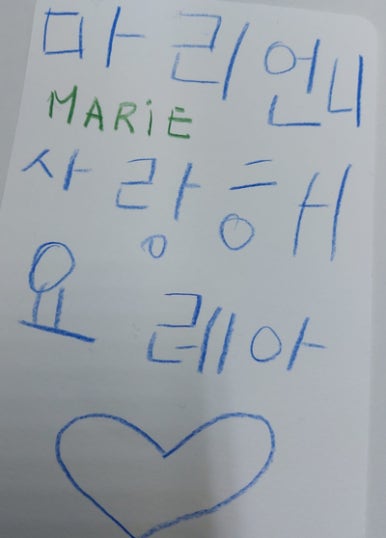 마리언니
MARiE
사랑해
요 레아